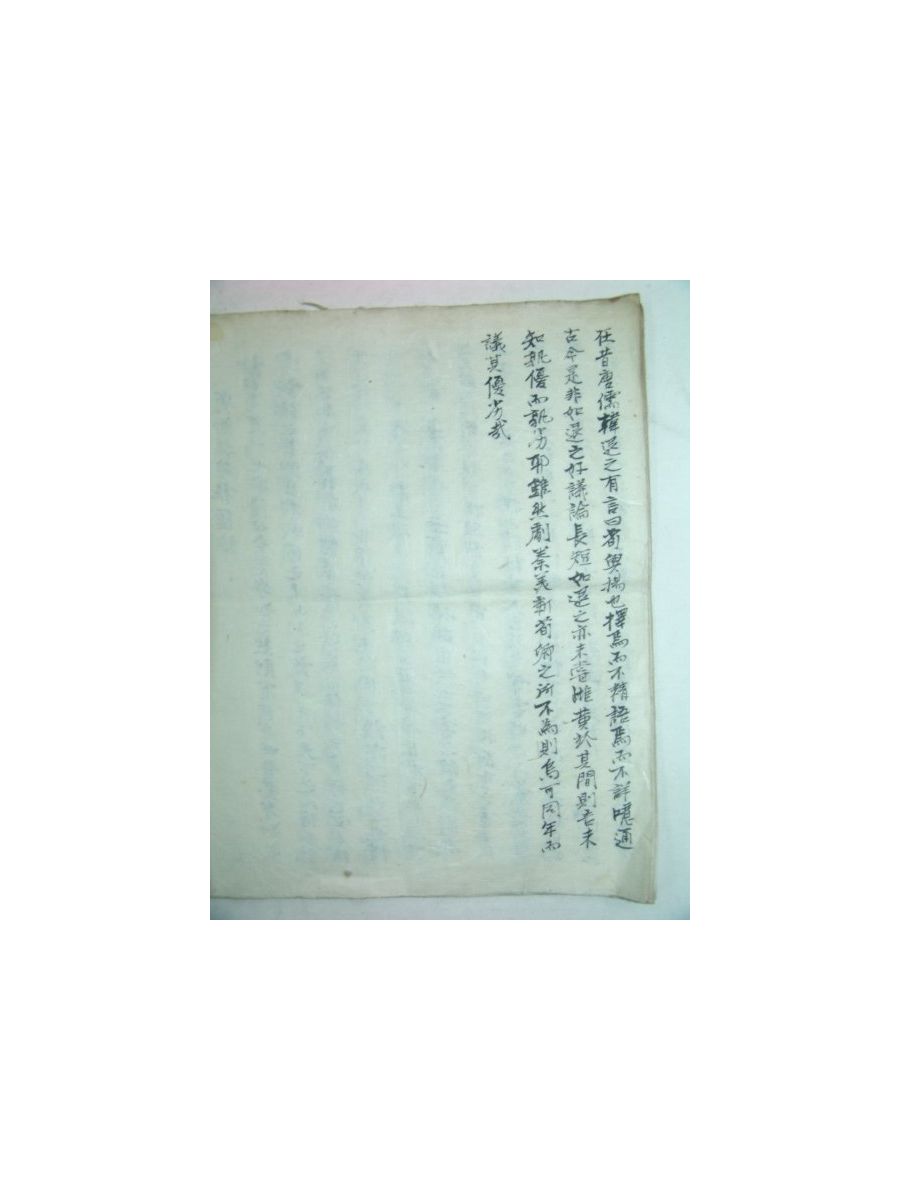 在昔唐儒韓退之有言曰荀與揚也擇焉而不精語焉而不詳噫通
古今是非如退之好議論長短如退之亦未嘗雌黃於其間則吾未
知孰優而孰劣耶雖然劇秦美新荀卿之所不爲則烏可同年而
議其優劣哉